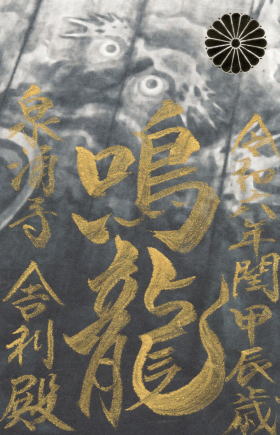 令和六年閏甲辰歳
鳴龍
泉涌寺
舎利殿